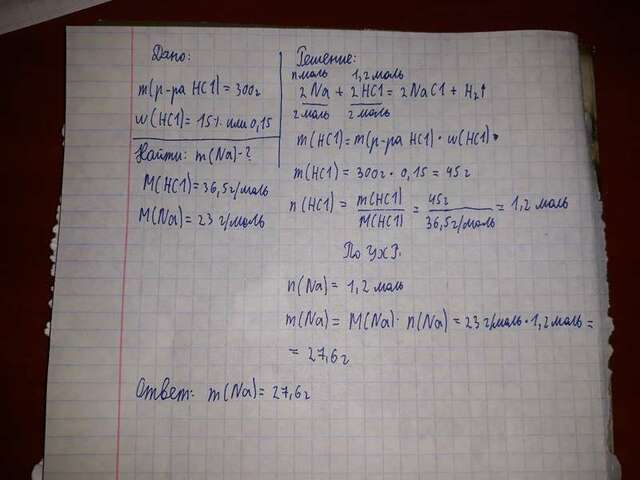 Дано:
m(р-ра HCl) = 300г
w(HCl) = 15% или 0,15
Найти: m(Na) - ?
M(HCl) = 36,5г/моль
M(Na) = 23 г/моль
Решение:
n моль 1,2 моль
2Na + 2HCl = 2NaCl + H₂↑
2 моль 2 моль
m(HCl) = m(р-ра HCl) · w(HCl) •
m(HCl) = 300г · 0,15 = 45г
n(HCl) = m(HCl)/M(HCl) = 45г/36,5г/моль = 1,2 моль
По УХР:
n(Na) = 1,2 моль
m(Na) = M(Na) · n(Na) = 23 г/моль · 1,2 моль =
= 27,6г
Ответ: m(Na) = 27,6г